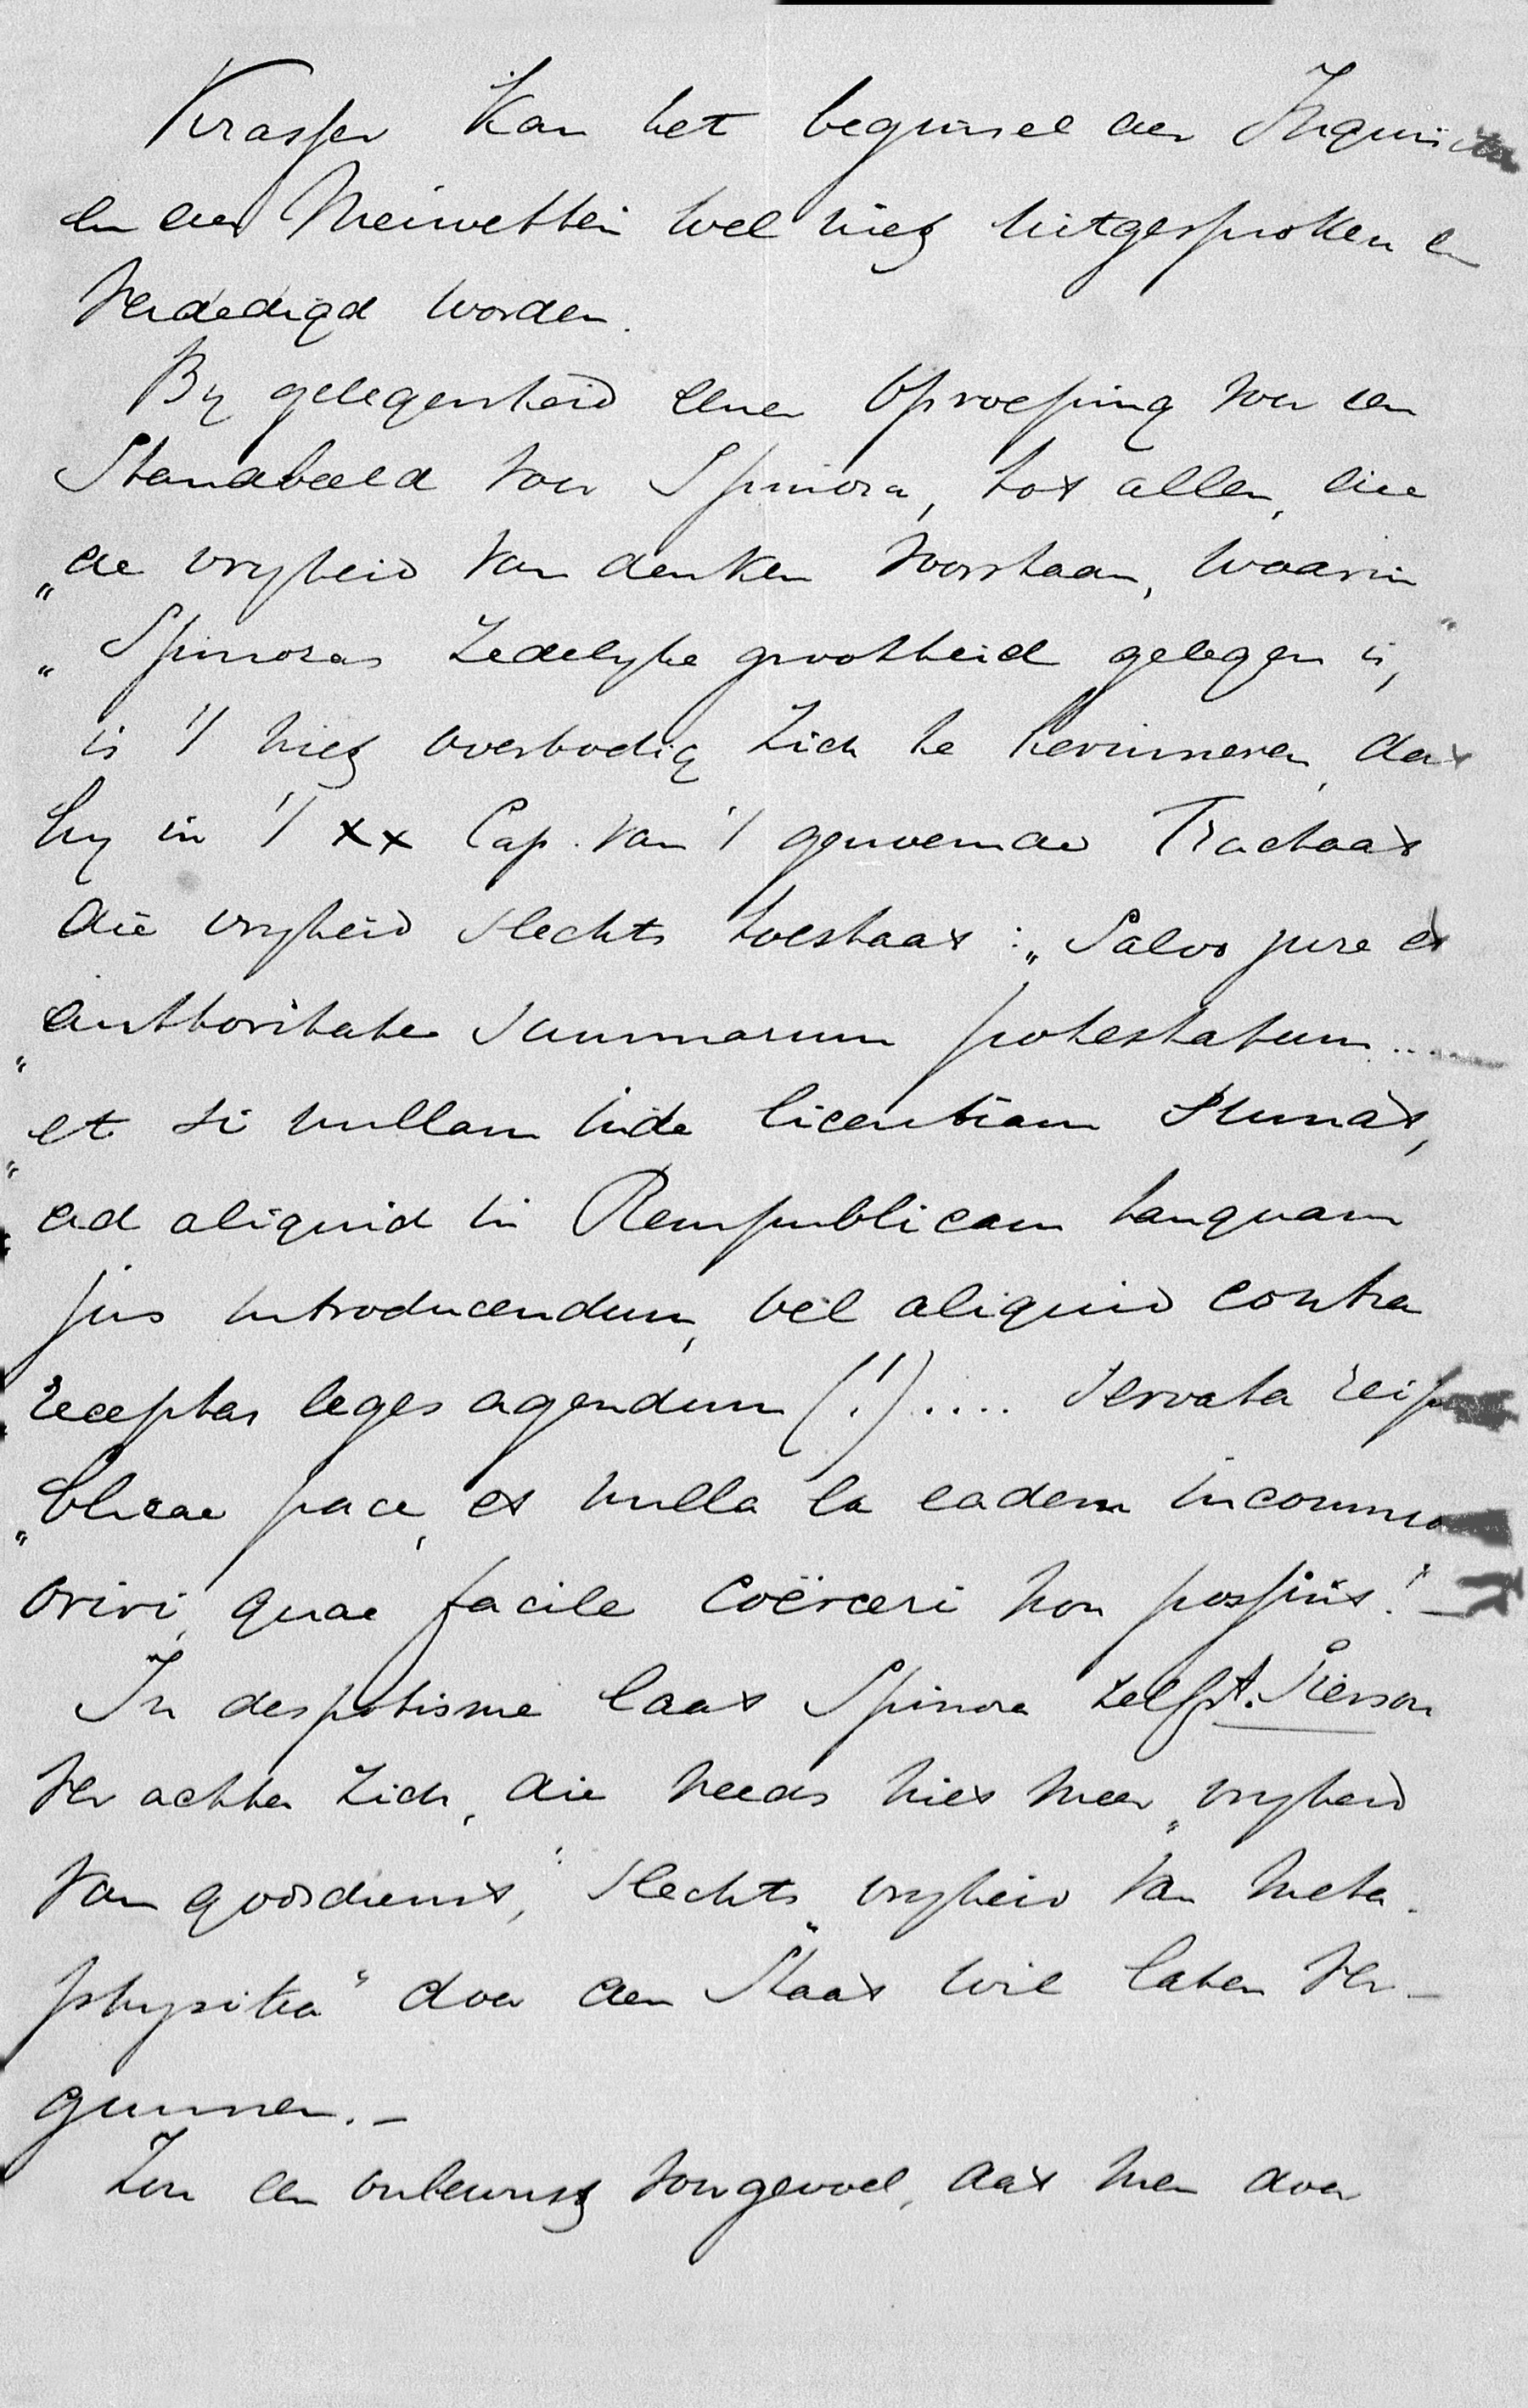 Krasser kan het beginsel der Inquisitie
en der Meiwetten wel niet uitgesproken en
verdedigd worden.
By gelegenheid eener oproeping voor een
Standbeeld voor Spinoza, tot allen, die
„de vryheid van denken voorstaan, waarin
„Spinozas zedelyke grootheid gelegen is,"
is 't niet overbodig zich te herinneren, dat
hy in 't XX Cap. van 't genoemde Tractaat
die vryheid slechts toestaat: „Salvo jure et
„authoritate summarum potestatum....
„et si nullam inde licentiam sumat,
ad aliquid in Rempublicam tanquam
jus introducendum, vel aliquid contra
receptas leges agendum (!).... servata reipu
„blicae pace, et nulla ex eadem incommoda
oriri, quae facile coërceri non possint."—
In despotisme laat Spinoza zelfs A. Pierson
ver achter zich, die reeds niet meer „vryheid
van godsdienst," slechts „vryheid van meta-
physika" door den Staat wil laten ver-
gunnen.—
Zou een onbewust voorgevoel, dat men door